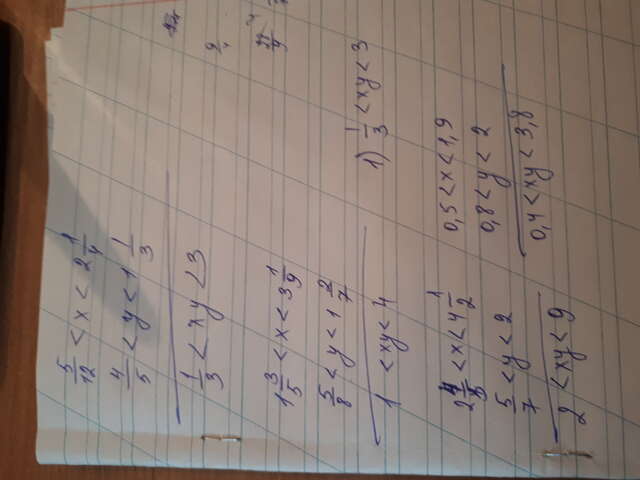 5/12 < x < 2 1/4
4/5 < y < 1 1/3
1/3 < xy < 3
1 3/5 < x < 3 1/9
5/8 < y < 1 2/7
1 < xy < 4
1) 1/3 < xy < 3
2 4/5 < x < 4 1/2
5/7 < y < 2
2 < xy < 9
0,5 < x < 1,9
0,8 < y < 2
0,4 < xy < 3,8